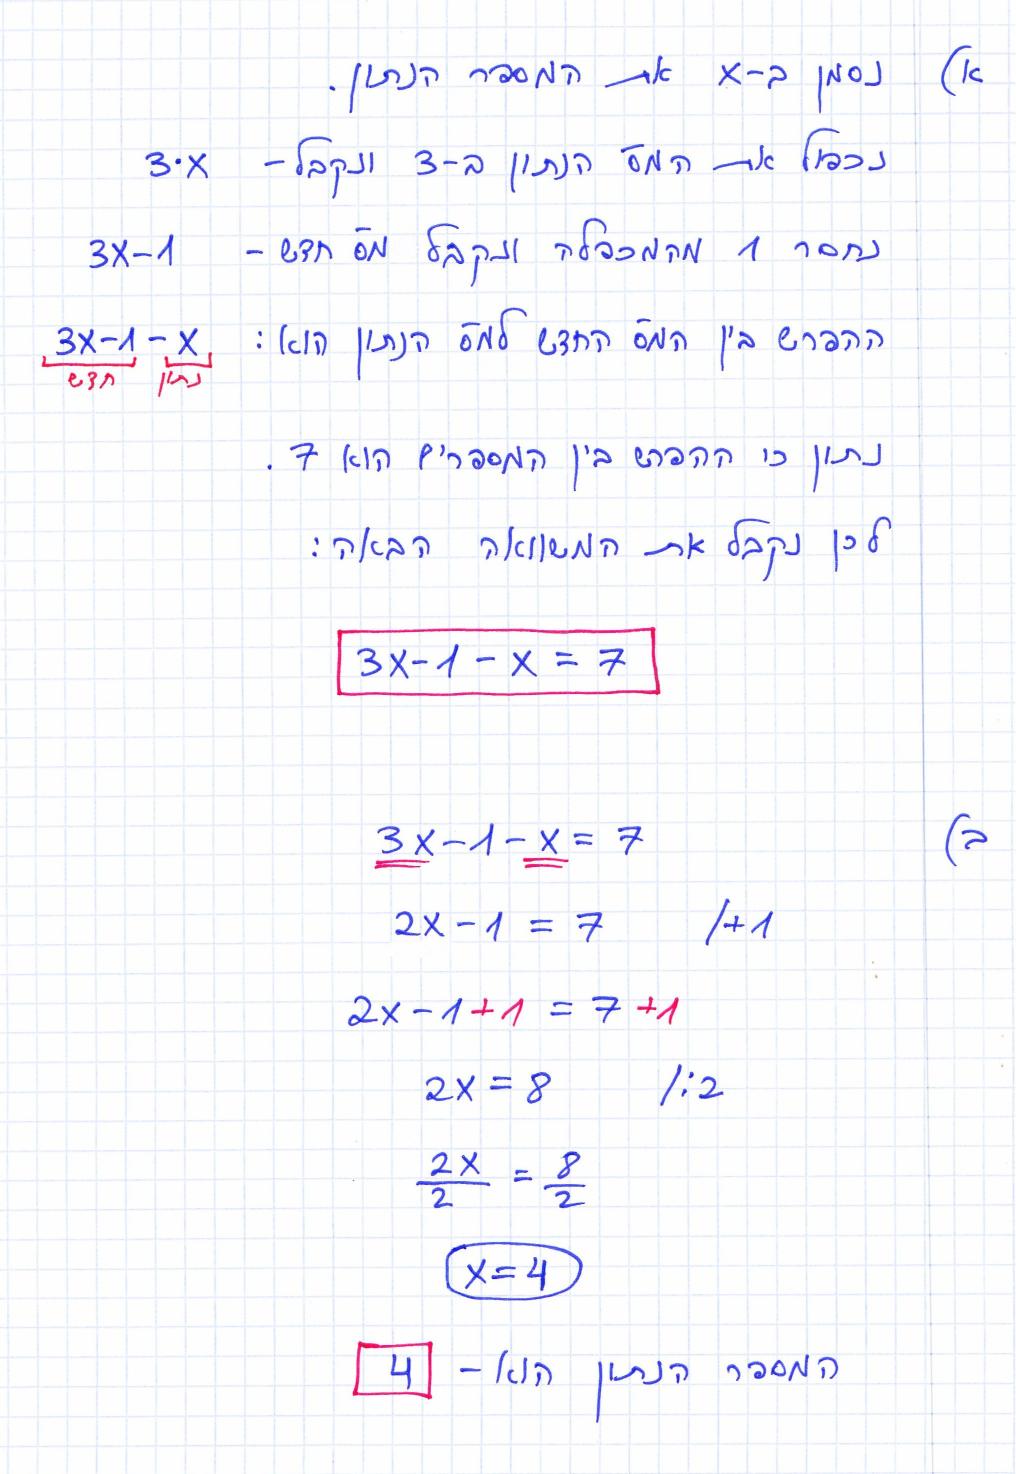 א) נסמן ב-x את המספר הנתון.
נכפול את המס' הנתון ב-3 ונקבל- 3·x
נחסר 1 מהמכפלה ונקבל מס' חדש - 3x-1
ההפרש בין המס' החדש למס' הנתון הוא: 3x-1-x
חדש נתון
נתון כי ההפרש בין המספרים הוא 7.
לכן נקבל את המשוואה הבאה:
3x-1-x=7
ב) 3x-1-x=7
2x-1=7 /+1
2x-1+1=7+1
2x=8 /:2
2x/2=8/2
x=4
המספר הנתון הוא- 4